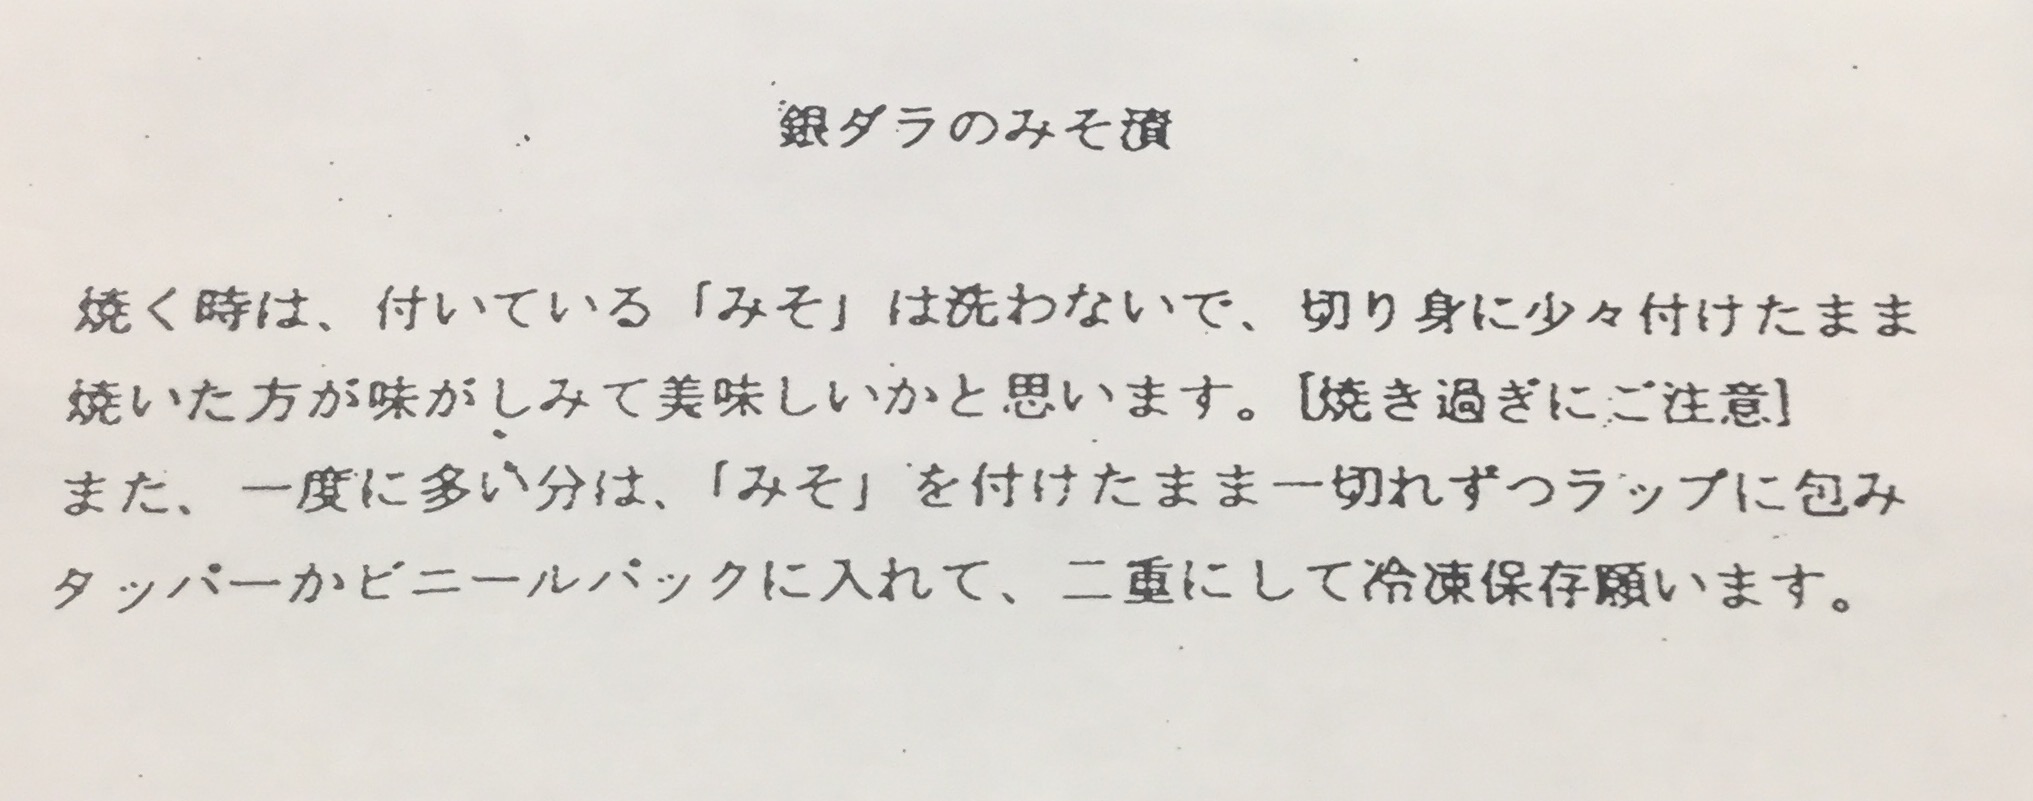 銀ダラのみそ漬
焼く時は、付いている「みそ」は洗わないで、切り身に少々付けたまま
焼いた方が味がしみて美味しいかと思います。[焼き過ぎにご注意]
また、一度に多い分は、「みそ」を付けたまま一切れずつラップに包み
タッパーかビニールパックに入れて、二重にして冷凍保存願います。